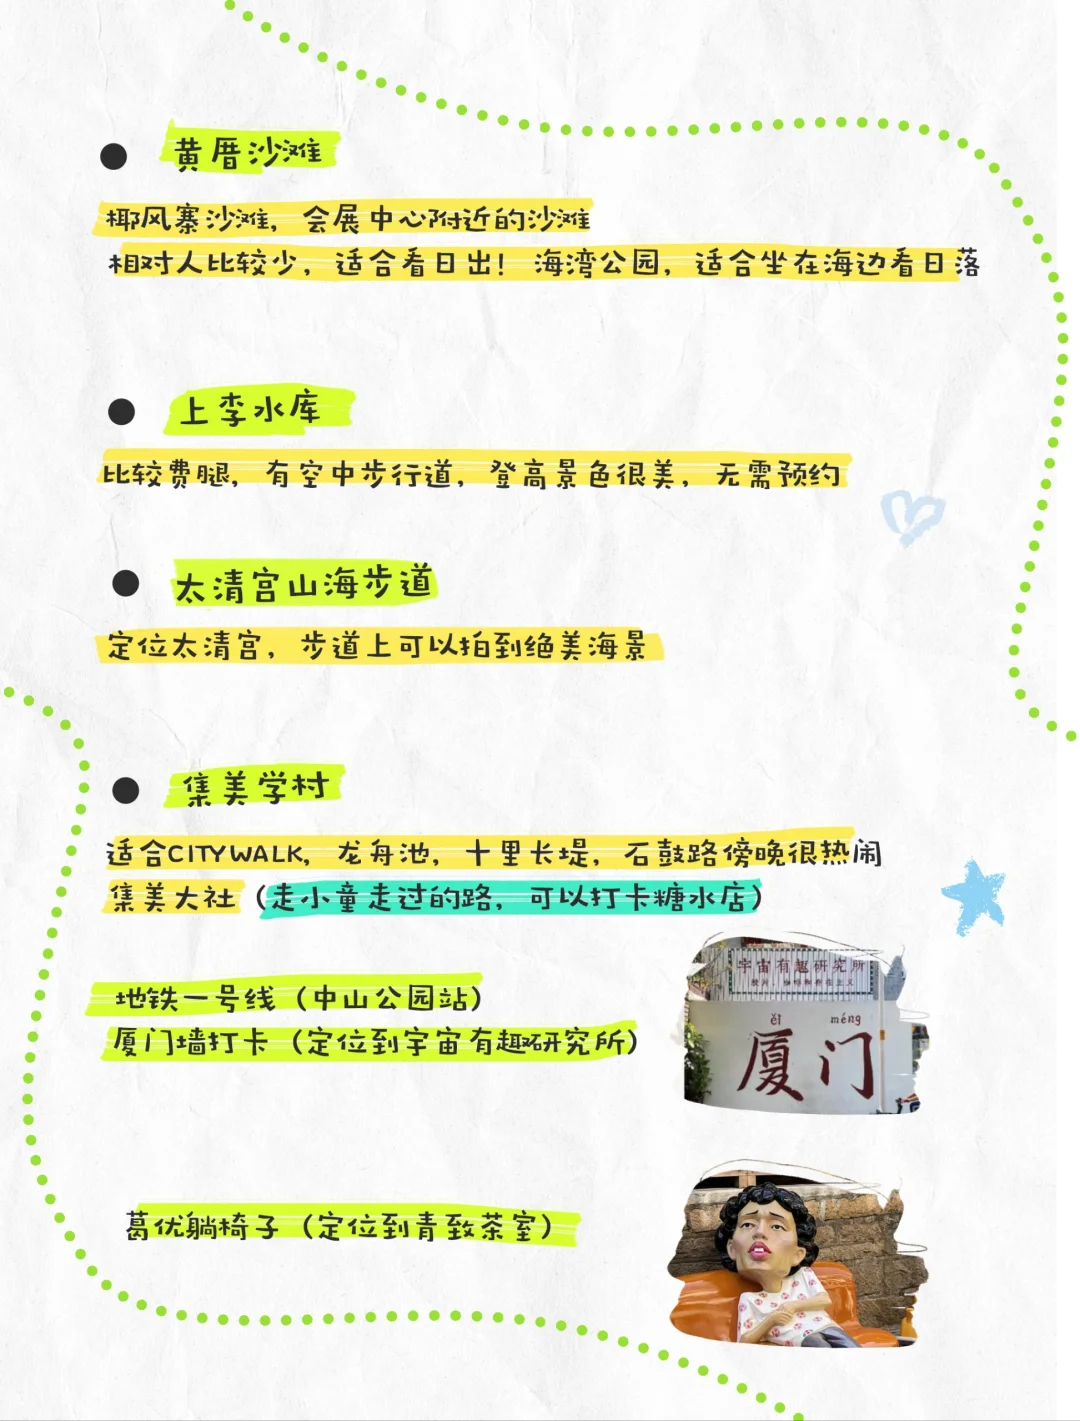 黄厝沙滩
椰风寨沙滩，会展中心附近的沙滩
相对人比较少，适合看日出！海湾公园，适合坐在海边看日落
上李水库
比较费腿，有空中步行道，登高景色很美，无需预约
太清宫山海步道
定位太清宫，步道上可以拍到绝美海景
集美学村
适合CITYWALK，龙舟池，十里长堤，石鼓路傍晚很热闹
集美大社（走小童走过的路，可以打卡糖水店）
地铁一号线（中山公园站）
厦门墙打卡（定位到宇宙有趣研究所）
宇宙有趣研究所
ěi méng
厦门
葛优躺椅子（定位到青致茶室）